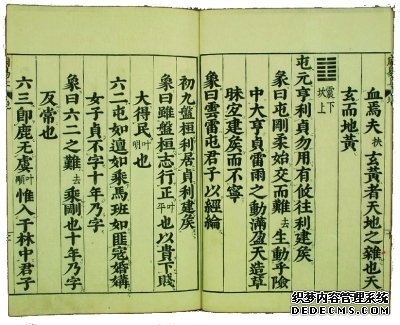 血焉夫扶玄黃者天地之雜也天
玄而地黃
䷂震下坎上
屯元亨利貞勿用有攸往利建矦
彖曰屯剛柔始交而難去生動乎險
中大亨貞雷雨之動滿盈天造草
昧宜建矦而不寧
象曰雲雷屯君子以經綸
初九盤桓利居貞利建矦
象曰雖盤桓志行正叶平也以貴下賤
大得民叶明也
六二屯如邅如乘馬班如匪寇婚媾
女子貞不字十年乃字
象曰六二之難去乘剛也十年乃字
反常也
六三即鹿无虞惟入于林中君子
织梦内容管理系统
DEDECMS.COM